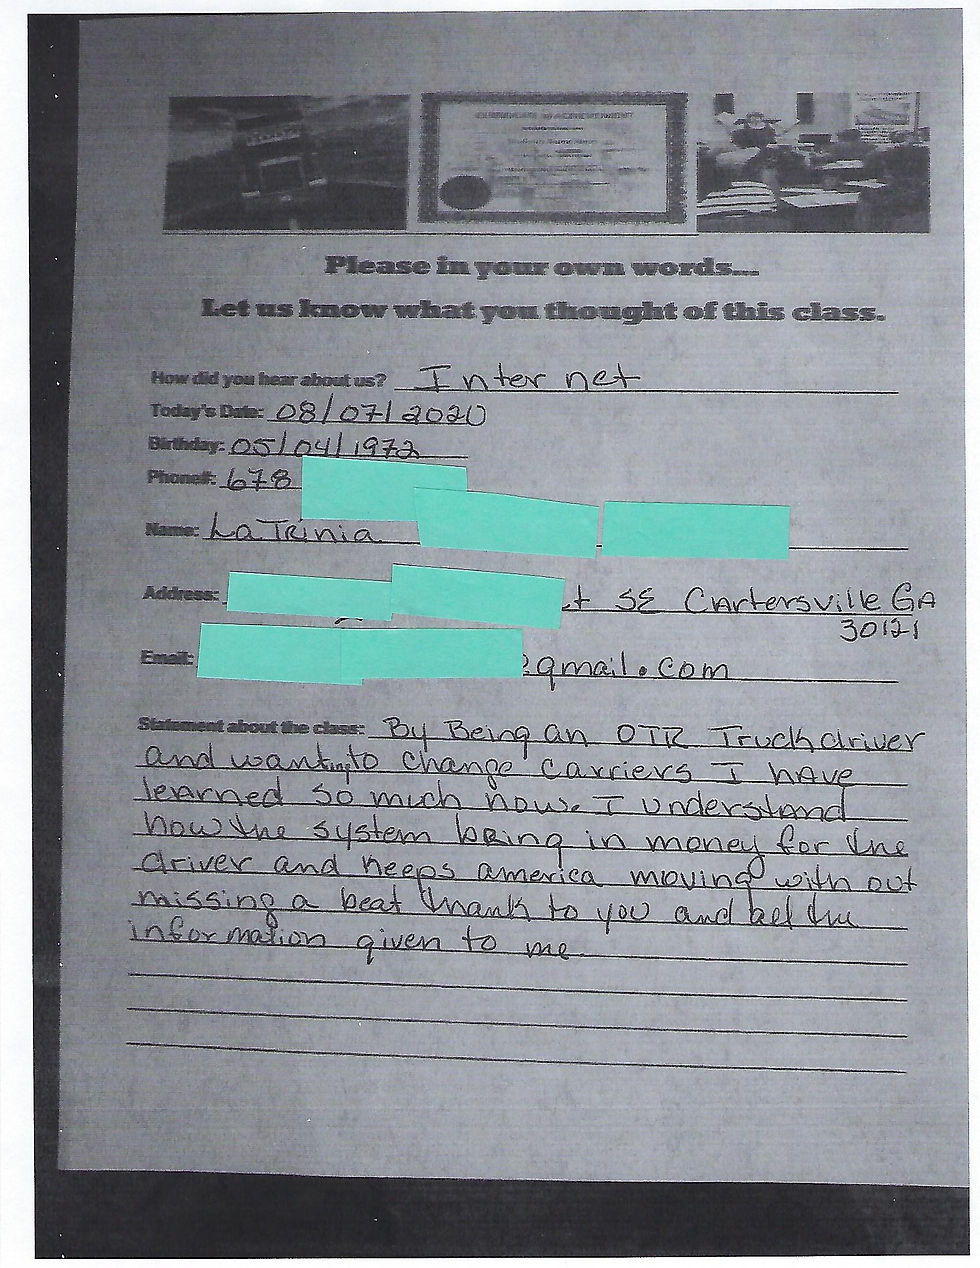 CERTIFICATE OF ACHIEVEMENT
Please in your own words...
Let us know what you thought of this class.
How did you hear about us? Internet
Today's Date: 08/07/2020
Birthday: 05/04/1972
Phone#: 678
Name: LaTrinia
Address: t SE Cartersville GA
30121
Email: @gmail.com
Statement about the class: By Being an OTR Truck driver
and wanting to change carriers I have
learned so much now. I understand
how the system bring in money for the
driver and keeps america moving with out
missing a beat thank to you and all the
information given to me